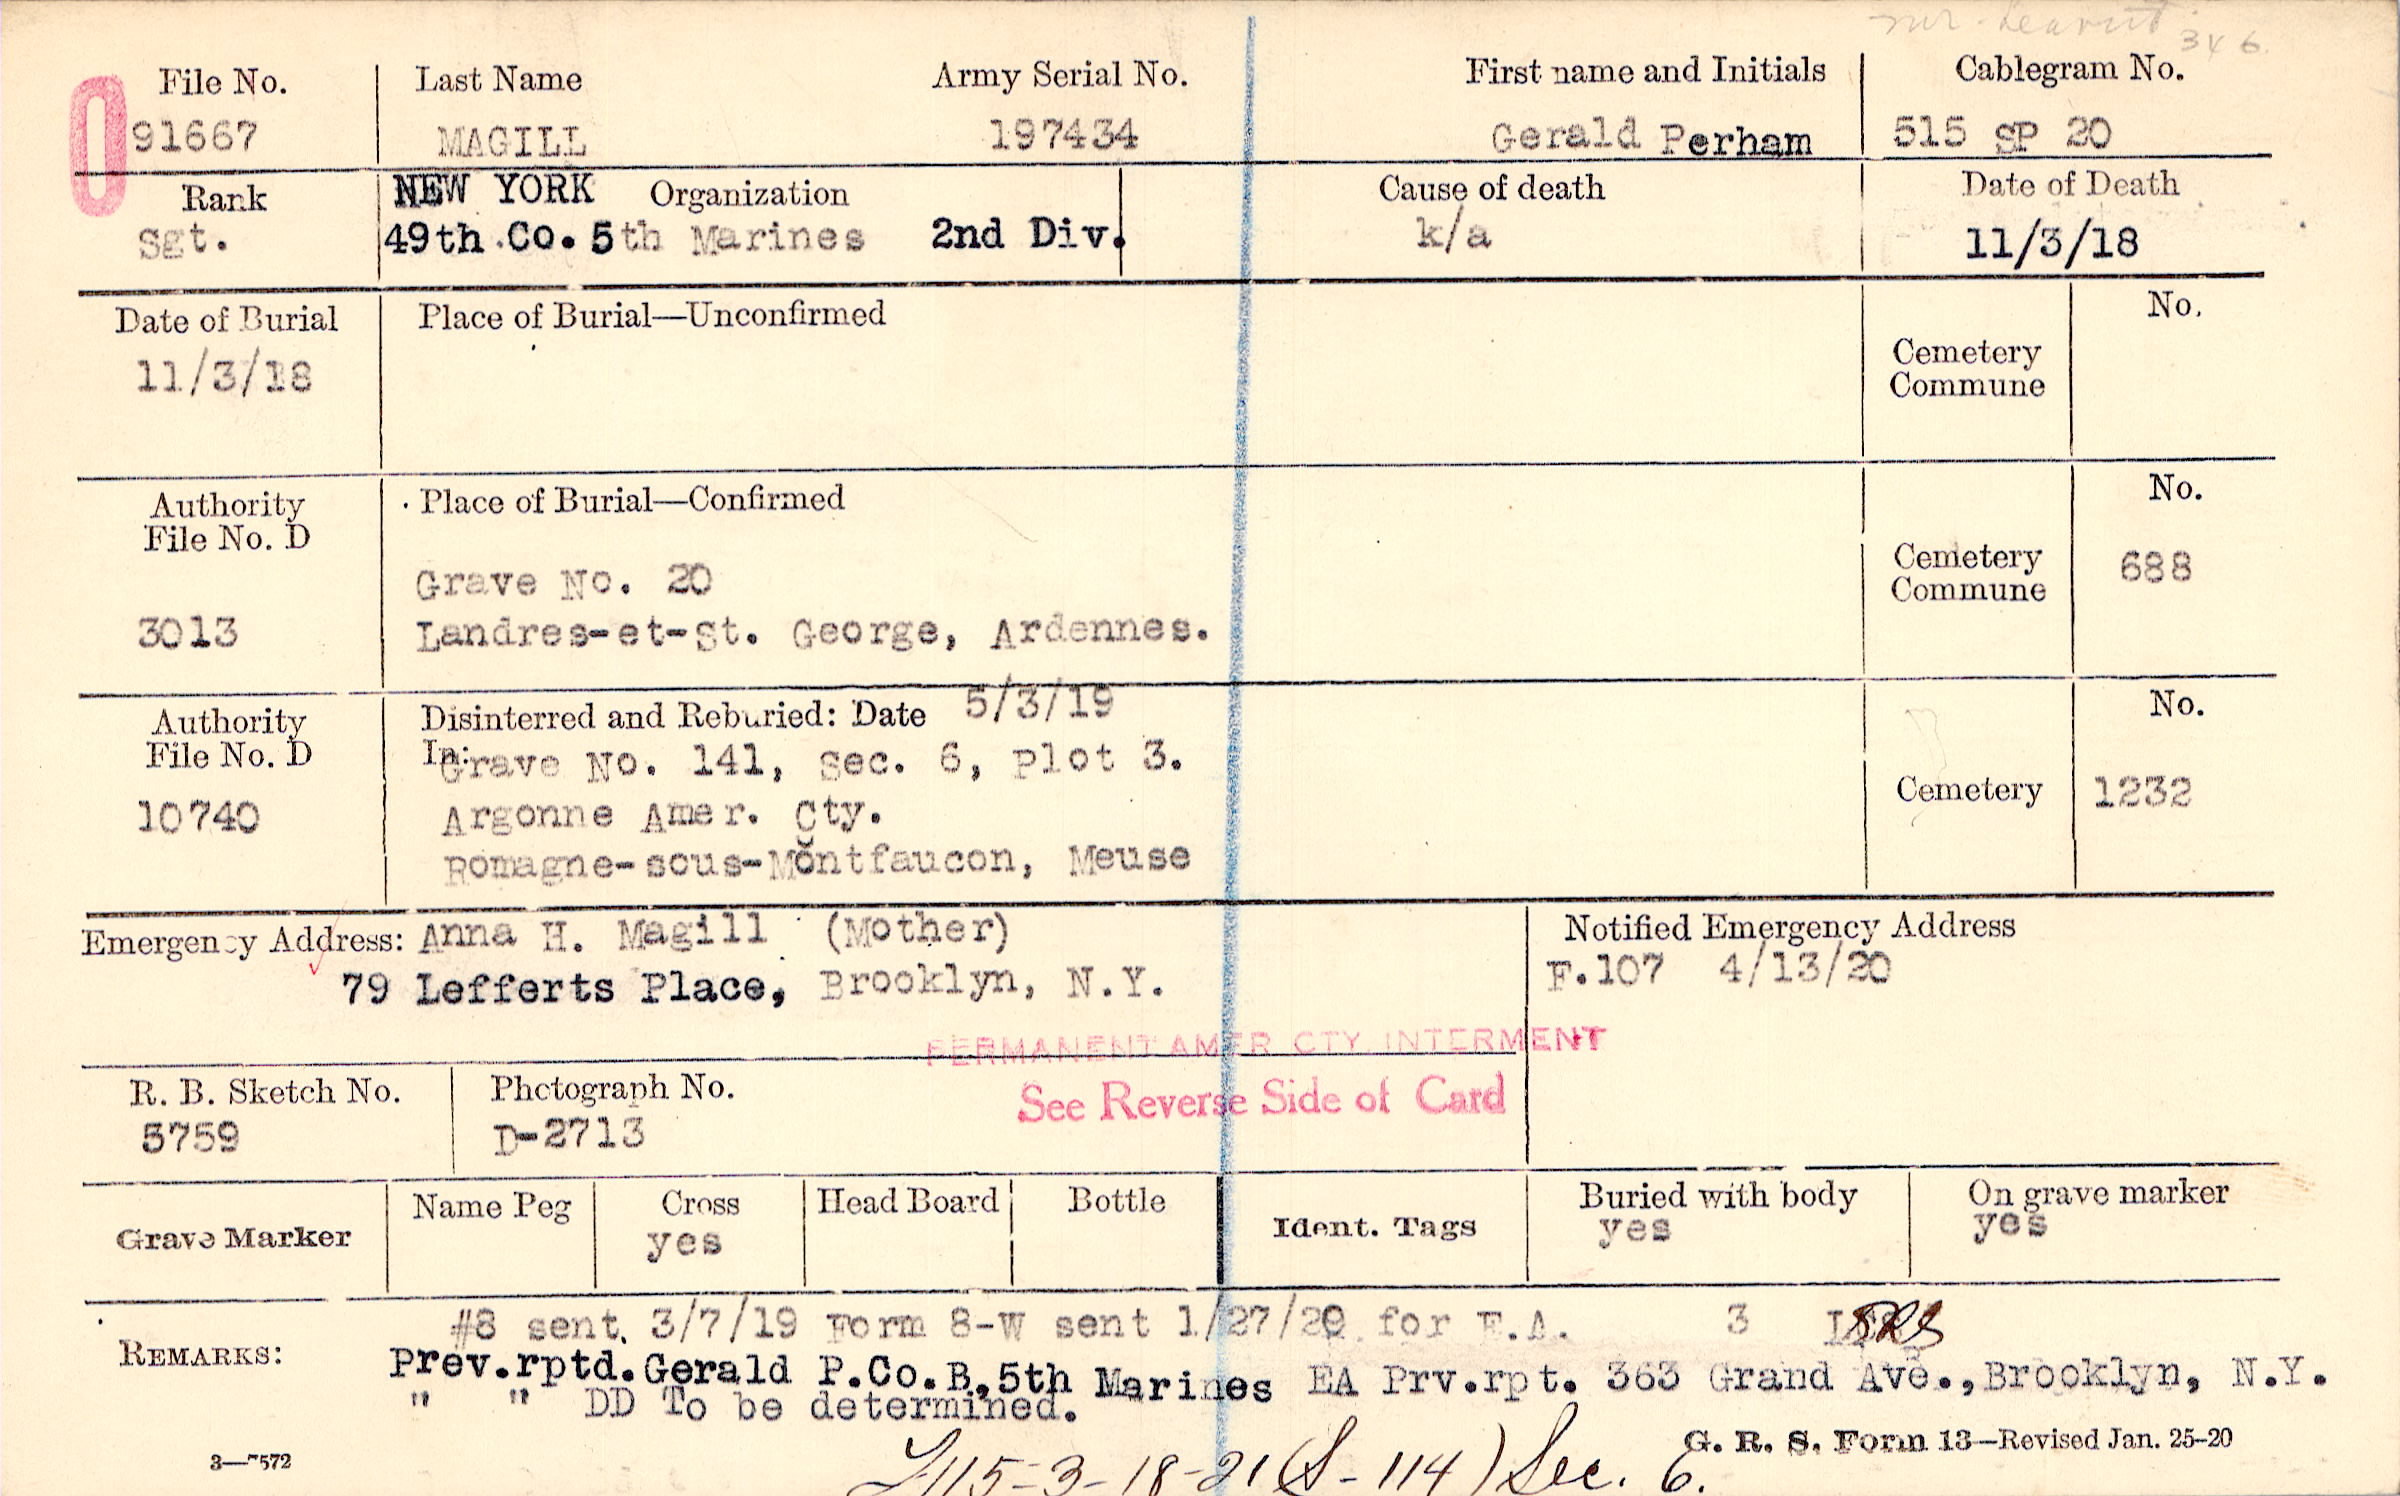 346.
File No. Last Name Army Serial No. First name and Initials Cablegram No.
91667 MAGILL 197434 Gerald Perham 515 SP 20
Rank NEW YORK Organization Cause of death Date of Death
Sgt. 49th Co. 5th Marines 2nd Div. k/a 11/3/18
Date of Burial Place of Burial—Unconfirmed No.
11/3/18 Cemetery
Commune
Authority Place of Burial—Confirmed No.
File No. D
Grave No. 20 Cemetery 688
Commune
3013 Landres-et-St. George, Ardennes.
Authority Disinterred and Reburied: Date 5/3/19 No.
File No. D In: Grave No. 141, Sec. 6, Plot 3.
10740 Argonne Amer. Cty. Cemetery 1232
Romagne-sous-Montfaucon, Meuse
Emergency Address: Anna H. Magill (Mother) Notified Emergency Address
79 Lefferts Place, Brooklyn, N.Y. F.107 4/13/20
PERMANENT AMER CTY INTERMENT
R. B. Sketch No. Photograph No. See Reverse Side of Card
5759 D-2713
Grave Marker Name Peg Cross Head Board Bottle Ident. Tags Buried with body On grave marker
yes yes yes
#8 sent. 3/7/19 Form 8-W sent 1/27/20 for E.A. 3
REMARKS: Prev.rptd.Gerald P.Co.B,5th Marines EA Prv.rpt. 363 Grand Ave.,Brooklyn, N.Y.
" " DD To be determined.
3—7572 G. R. S. Form 13—Revised Jan. 25-20
115-3-18-21 (S-114) Sec. 6.